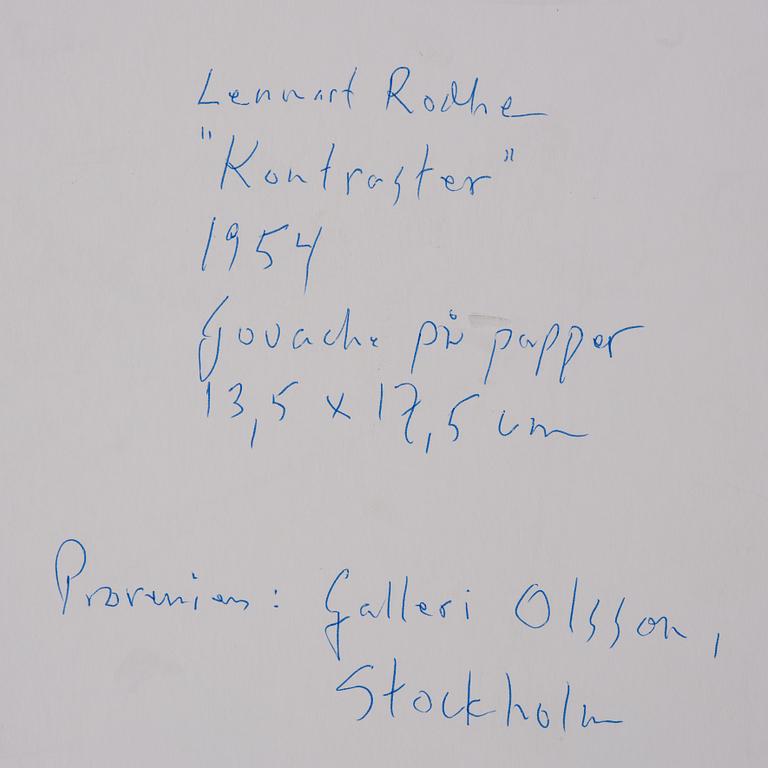 Lennart Rodhe
"Kontraster"
1954
Gouache på papper
13,5 x 17,5 cm
Proveniens: Galleri Olsson,
Stockholm